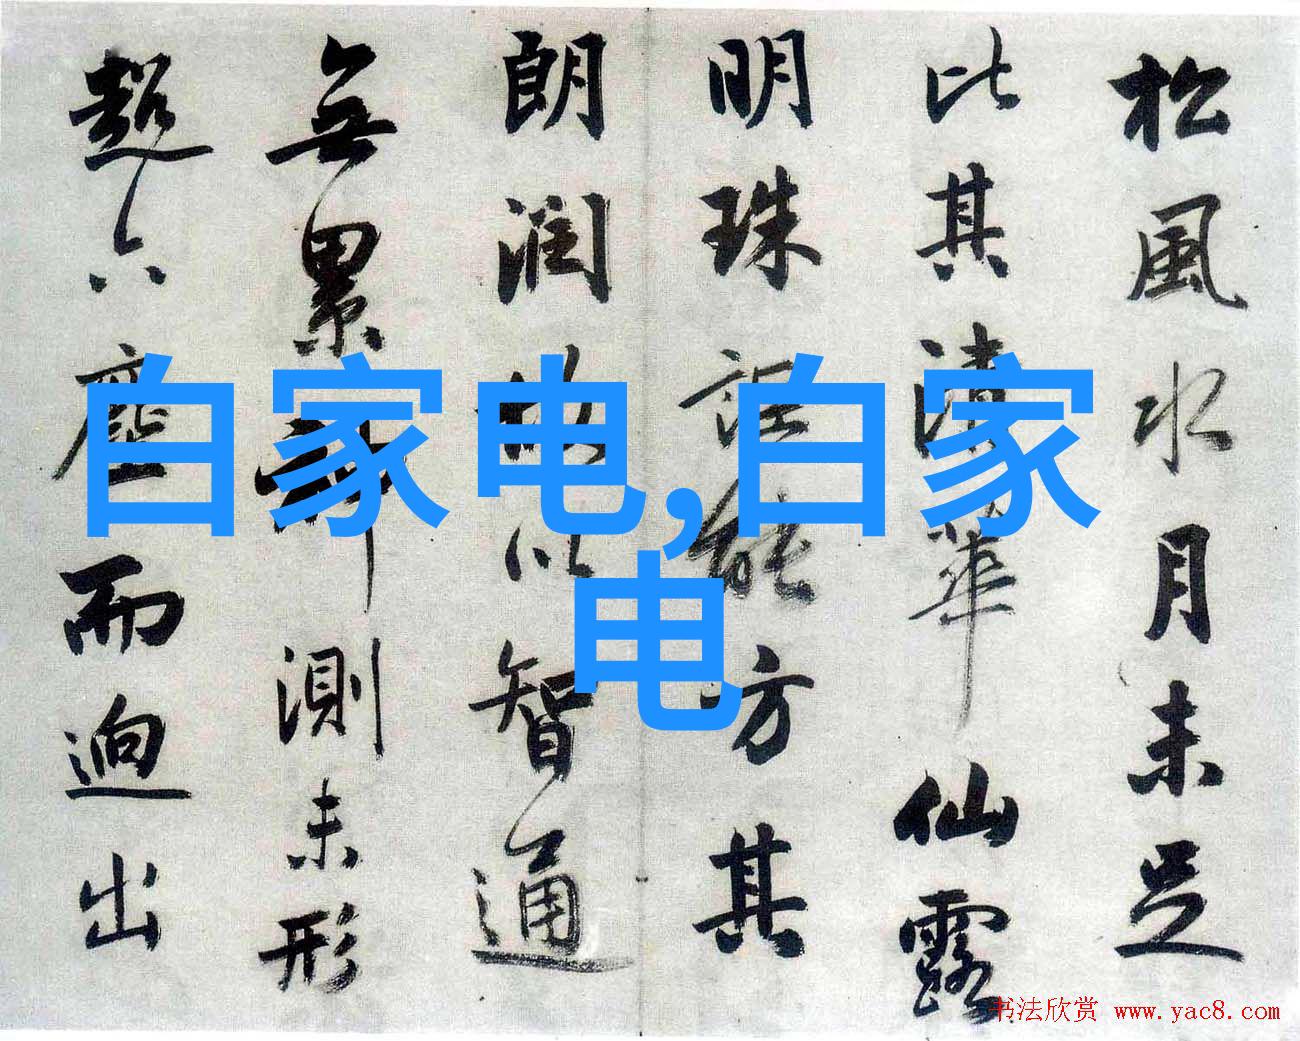 松風水月未足
比其清華仙露
明珠詎能方其
朗潤故以智通
無累神測未形
超六塵而迥出
白家电,白家
电
书法欣赏 www.yac8.com